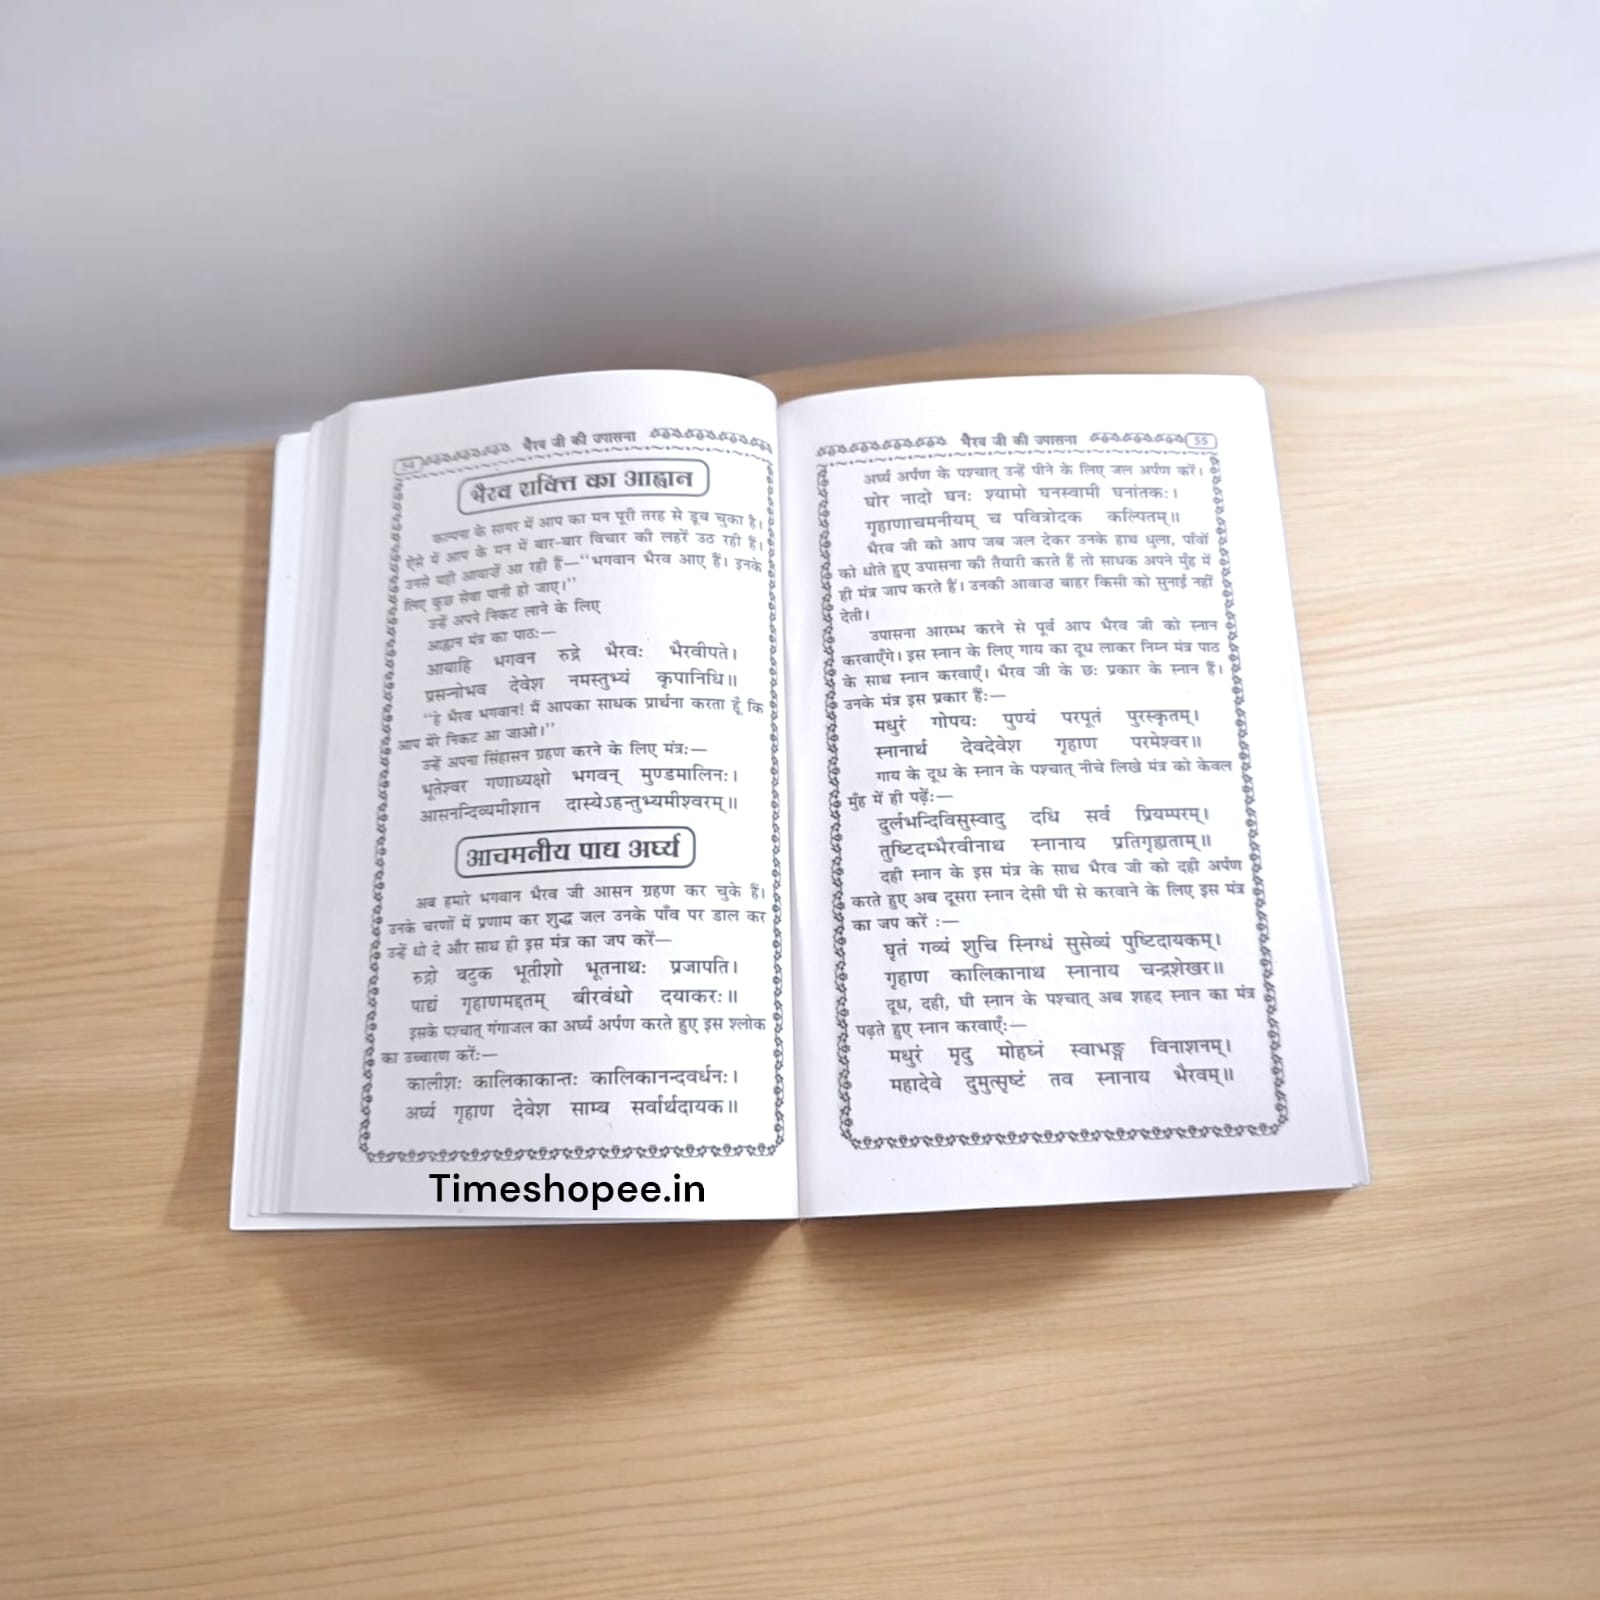 54 भैरव जी की उपासना
भैरव शक्ति का आह्वान
कल्पना के सागर में आप का मन पूरी तरह से डूब चुका है।
ऐसे में आप के मन में बार-बार विचार की लहरें उठ रही हैं।
उनसे यही आवाज़ें आ रही हैं—"भगवान भैरव आए हैं। इनके
लिए कुछ सेवा पानी हो जाए।"
उन्हें अपने निकट लाने के लिए
आह्वान मंत्र का पाठः—
आयाहि भगवन रुद्रे भैरवः भैरवीपते।
प्रसन्नोभव देवेश नमस्तुभ्यं कृपानिधि॥
"हे भैरव भगवान! मैं आपका साधक प्रार्थना करता हूँ कि
आप मेरे निकट आ जाओ।"
उन्हें अपना सिंहासन ग्रहण करने के लिए मंत्रः—
भूतेश्वर गणाध्यक्षो भगवन् मुण्डमालिनः।
आसनन्दिव्यमीशान दास्येऽहन्तुभ्यमीश्वरम्॥
आचमनीय पाद्य अर्घ्य
अब हमारे भगवान भैरव जी आसन ग्रहण कर चुके हैं।
उनके चरणों में प्रणाम कर शुद्ध जल उनके पाँव पर डाल कर
उन्हें धो दे और साथ ही इस मंत्र का जप करें—
रुद्रो बटुक भूतीशो भूतनाथः प्रजापति।
पाद्यं गृहाणमद्दतम् बीरवंधो दयाकरः॥
इसके पश्चात् गंगाजल का अर्घ्य अर्पण करते हुए इस श्लोक
का उच्चारण करेंः—
कालीशः कालिकाकान्तः कालिकानन्दवर्धनः।
अर्घ्य गृहाण देवेश साम्ब सर्वार्थदायक॥
Timeshopee.in
भैरव जी की उपासना 55
अर्घ्य अर्पण के पश्चात् उन्हें पीने के लिए जल अर्पण करें।
घोर नादो घनः श्यामो घनस्वामी घनांतकः।
गृहाणाचमनीयम् च पवित्रोदक कल्पितम्॥
भैरव जी को आप जब जल देकर उनके हाथ धुला, पाँवों
को धोते हुए उपासना की तैयारी करते हैं तो साधक अपने मुँह में
ही मंत्र जाप करते हैं। उनकी आवाज़ बाहर किसी को सुनाई नहीं
देती।
उपासना आरम्भ करने से पूर्व आप भैरव जी को स्नान
करवाएँगे। इस स्नान के लिए गाय का दूध लाकर निम्न मंत्र पाठ
के साथ स्नान करवाएँ। भैरव जी के छः प्रकार के स्नान हैं।
उनके मंत्र इस प्रकार हैंः—
मधुरं गोपयः पुण्यं परपूतं पुरस्कृतम्।
स्नानार्थ देवदेवेश गृहाण परमेश्वर॥
गाय के दूध के स्नान के पश्चात् नीचे लिखे मंत्र को केवल
मुँह में ही पढ़ेंः—
दुर्लभन्दिविसुस्वादु दधि सर्व प्रियम्परम्।
तुष्टिदम्भैरवीनाथ स्नानाय प्रतिगृह्यताम्॥
दही स्नान के इस मंत्र के साथ भैरव जी को दही अर्पण
करते हुए अब दूसरा स्नान देसी घी से करवाने के लिए इस मंत्र
का जप करें :—
घृतं गव्यं शुचि स्निग्धं सुसेव्यं पुष्टिदायकम्।
गृहाण कालिकानाथ स्नानाय चन्द्रशेखर॥
दूध, दही, घी स्नान के पश्चात् अब शहद स्नान का मंत्र
पढ़ते हुए स्नान करवाएँः—
मधुरं मृदु मोहघ्नं स्वाभङ्ग विनाशनम्।
महादेवे दुमुत्सृष्टं तव स्नानाय भैरवम्॥